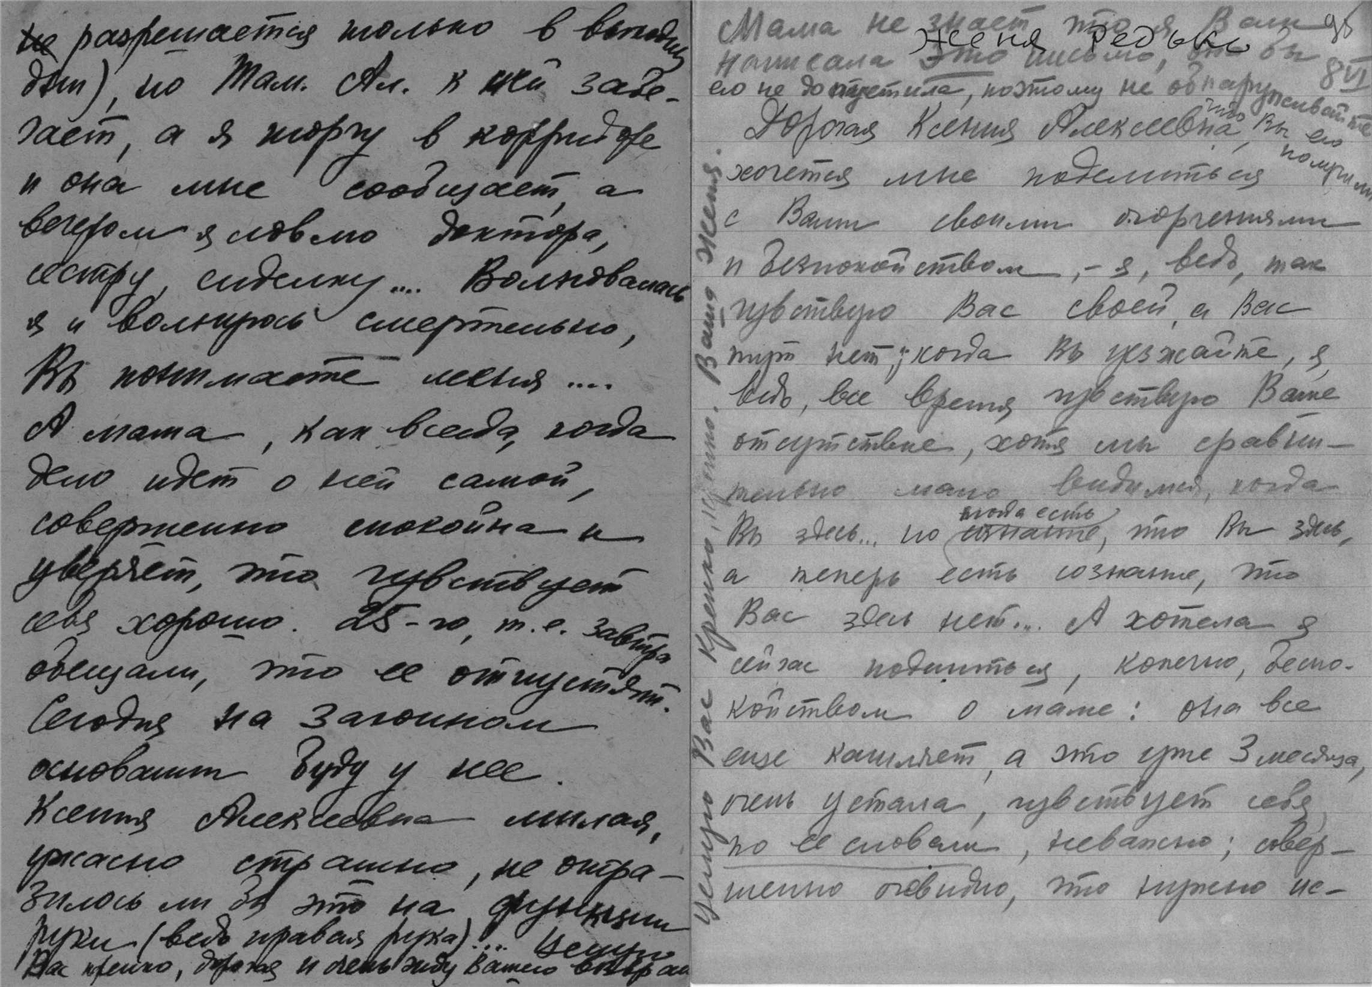 не разрешается только в выходные
дни), но Там. Ал. к ней забе-
гает, а я торчу в коридоре
и она мне сообщает, а
вечером я ловлю доктора,
сестру, сиделку.... Волновалась
я и волнуюсь смертельно,
Вы понимаете меня ....
А мама, как всегда, когда
дело идет о ней самой,
совершенно спокойна и
уверяет, что чувствует
себя хорошо. 25-го, т.е. завтра
обещали, что ее отпустят.
Сегодня на законном
основании буду у нее.
Ксения Алексеевна милая,
ужасно страшно, не отра-
зилось ли бы это на функции
руки (ведь правая рука).... Целую
Вас крепко, дорогая и очень жду Вашего возвра

Мама не знает что я Вам
Женя Редько
написала это письмо, она бы
его не допустила, поэтому не обнаруживайте
что Вы его получили
8 VI
Дорогая Ксения Алексеевна,
хочется мне поделиться
с Вами своими огорчениями
и безпокойством, - я, ведь, так
чувствую Вас своей, а Вас
тут нет; когда Вы уезжаете, я,
ведь, все время чувствую Ваше
отсутствие, хотя мы сравни-
тельно мало видимся, когда
Вы здесь... но тогда есть сознание, что Вы здесь,
а теперь есть сознание, что
Вас здесь нет... А хотела я
сейчас поделиться, конечно, беспо-
койством о маме: она все
еще кашляет, а это уже 3 месяца,
очень устала, чувствует себя,
по ее словам, неважно; совер-
шенно очевидно, что нужно ис-
Целую Вас крепко, крепко. Ваша Женя.